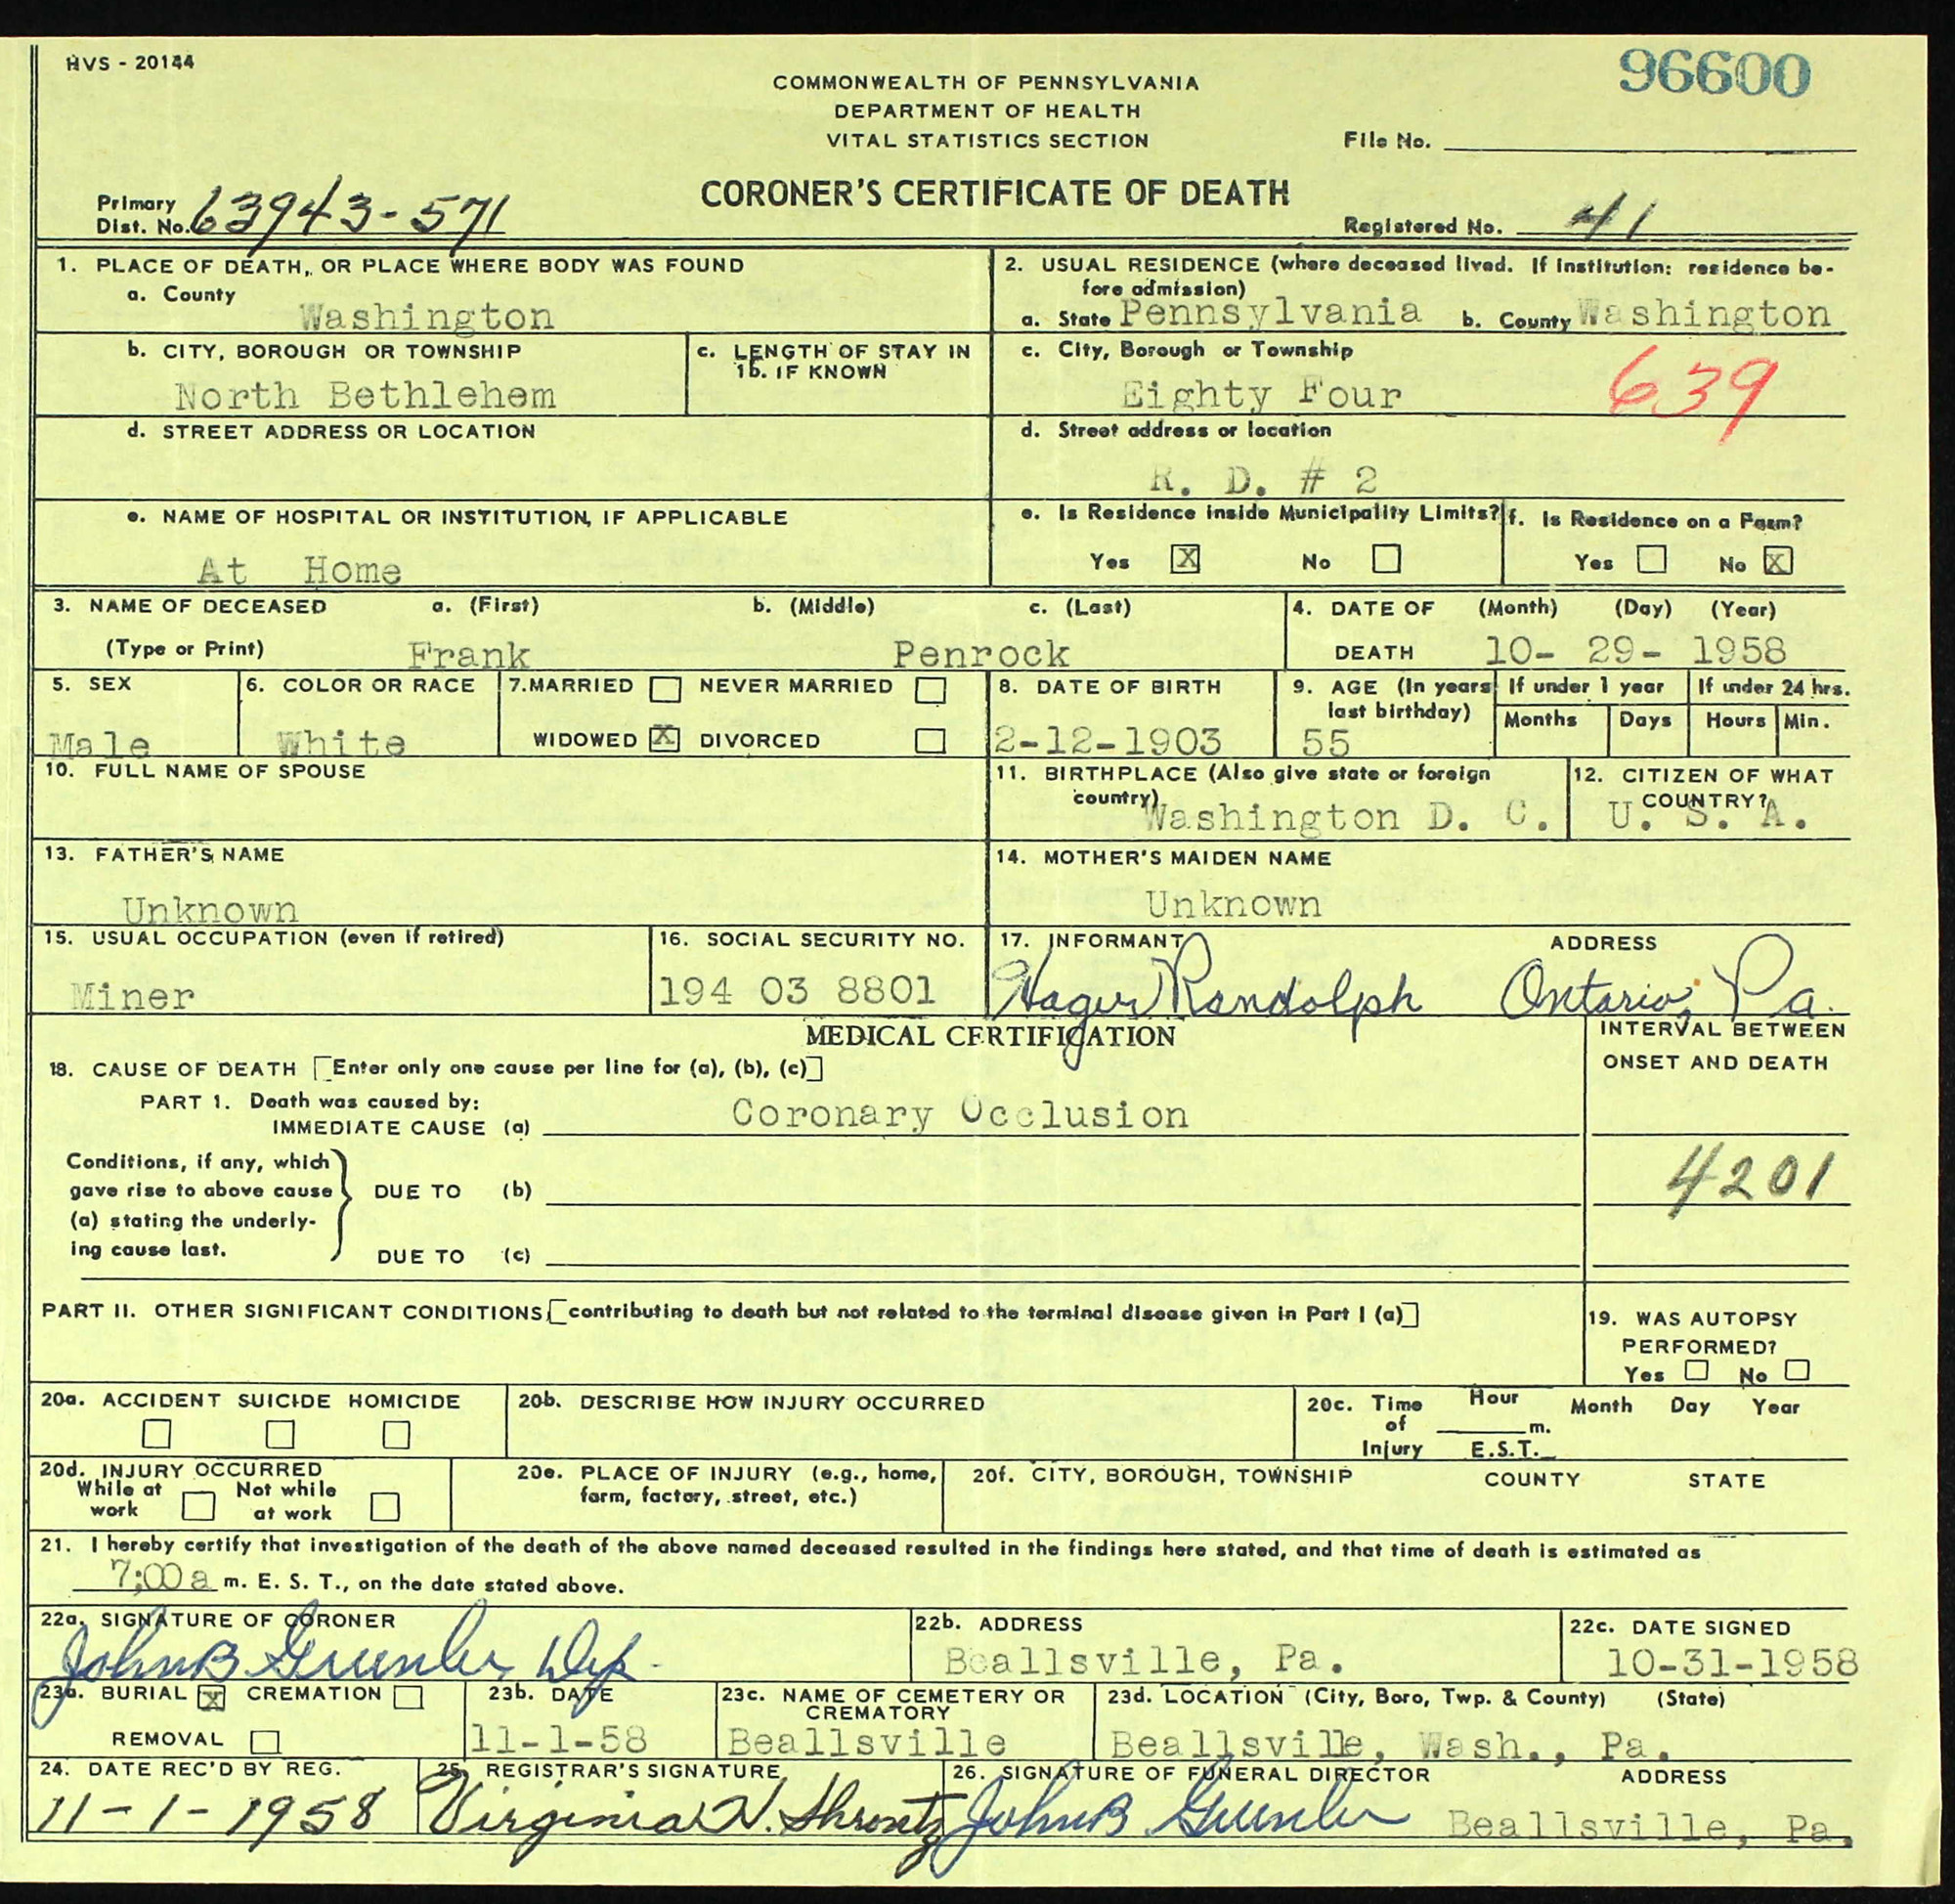 HVS - 20144
96600
COMMONWEALTH OF PENNSYLVANIA
DEPARTMENT OF HEALTH
VITAL STATISTICS SECTION
File No.
CORONER'S CERTIFICATE OF DEATH
Primary
Dist. No. 63943-571
Registered No. 41
1. PLACE OF DEATH, OR PLACE WHERE BODY WAS FOUND
a. County
Washington
2. USUAL RESIDENCE (where deceased lived. If institution: residence be-
fore admission)
a. State Pennsylvania b. County Washington
b. CITY, BOROUGH OR TOWNSHIP
North Bethlehem
c. LENGTH OF STAY IN
1b. IF KNOWN
c. City, Borough or Township
Eighty Four
639
d. STREET ADDRESS OR LOCATION
d. Street address or location
R. D. # 2
e. NAME OF HOSPITAL OR INSTITUTION, IF APPLICABLE
At Home
e. Is Residence inside Municipality Limits?
Yes X No
f. Is Residence on a Farm?
Yes No X
3. NAME OF DECEASED a. (First) b. (Middle) c. (Last)
(Type or Print) Frank Penrock
4. DATE OF (Month) (Day) (Year)
DEATH 10- 29- 1958
5. SEX
Male
6. COLOR OR RACE
White
7. MARRIED NEVER MARRIED
WIDOWED X DIVORCED
8. DATE OF BIRTH
2-12-1903
9. AGE (In years
last birthday)
55
If under 1 year
Months Days
If under 24 hrs.
Hours Min.
10. FULL NAME OF SPOUSE
11. BIRTHPLACE (Also give state or foreign
country)
Washington D. C.
12. CITIZEN OF WHAT
COUNTRY?
U. S. A.
13. FATHER'S NAME
Unknown
14. MOTHER'S MAIDEN NAME
Unknown
15. USUAL OCCUPATION (even if retired)
Miner
16. SOCIAL SECURITY NO.
194 03 8801
17. INFORMANT ADDRESS
Hager Randolph Ontario, Pa.
MEDICAL CERTIFICATION
INTERVAL BETWEEN
ONSET AND DEATH
18. CAUSE OF DEATH [Enter only one cause per line for (a), (b), (c)]
PART 1. Death was caused by:
IMMEDIATE CAUSE (a) Coronary Occlusion
Conditions, if any, which
gave rise to above cause
(a) stating the underly-
ing cause last.
DUE TO (b)
4201
DUE TO (c)
PART II. OTHER SIGNIFICANT CONDITIONS [contributing to death but not related to the terminal disease given in Part I (a)]
19. WAS AUTOPSY
PERFORMED?
Yes No
20a. ACCIDENT SUICIDE HOMICIDE
20b. DESCRIBE HOW INJURY OCCURRED
20c. Time
of
Injury
Hour
m.
E.S.T.
Month Day Year
20d. INJURY OCCURRED
While at
work
Not while
at work
20e. PLACE OF INJURY (e.g., home,
farm, factory, street, etc.)
20f. CITY, BOROUGH, TOWNSHIP COUNTY STATE
21. I hereby certify that investigation of the death of the above named deceased resulted in the findings here stated, and that time of death is estimated as
7;00 a m. E. S. T., on the date stated above.
22a. SIGNATURE OF CORONER
John B Greenlee Dep.
22b. ADDRESS
Beallsville, Pa.
22c. DATE SIGNED
10-31-1958
23a. BURIAL X CREMATION
REMOVAL
23b. DATE
11-1-58
23c. NAME OF CEMETERY OR
CREMATORY
Beallsville
23d. LOCATION (City, Boro, Twp. & County) (State)
Beallsville, Wash., Pa.
24. DATE REC'D BY REG.
11-1-1958
25. REGISTRAR'S SIGNATURE
Virginia N. Shrontz
26. SIGNATURE OF FUNERAL DIRECTOR ADDRESS
John B Greenlee Beallsville, Pa.